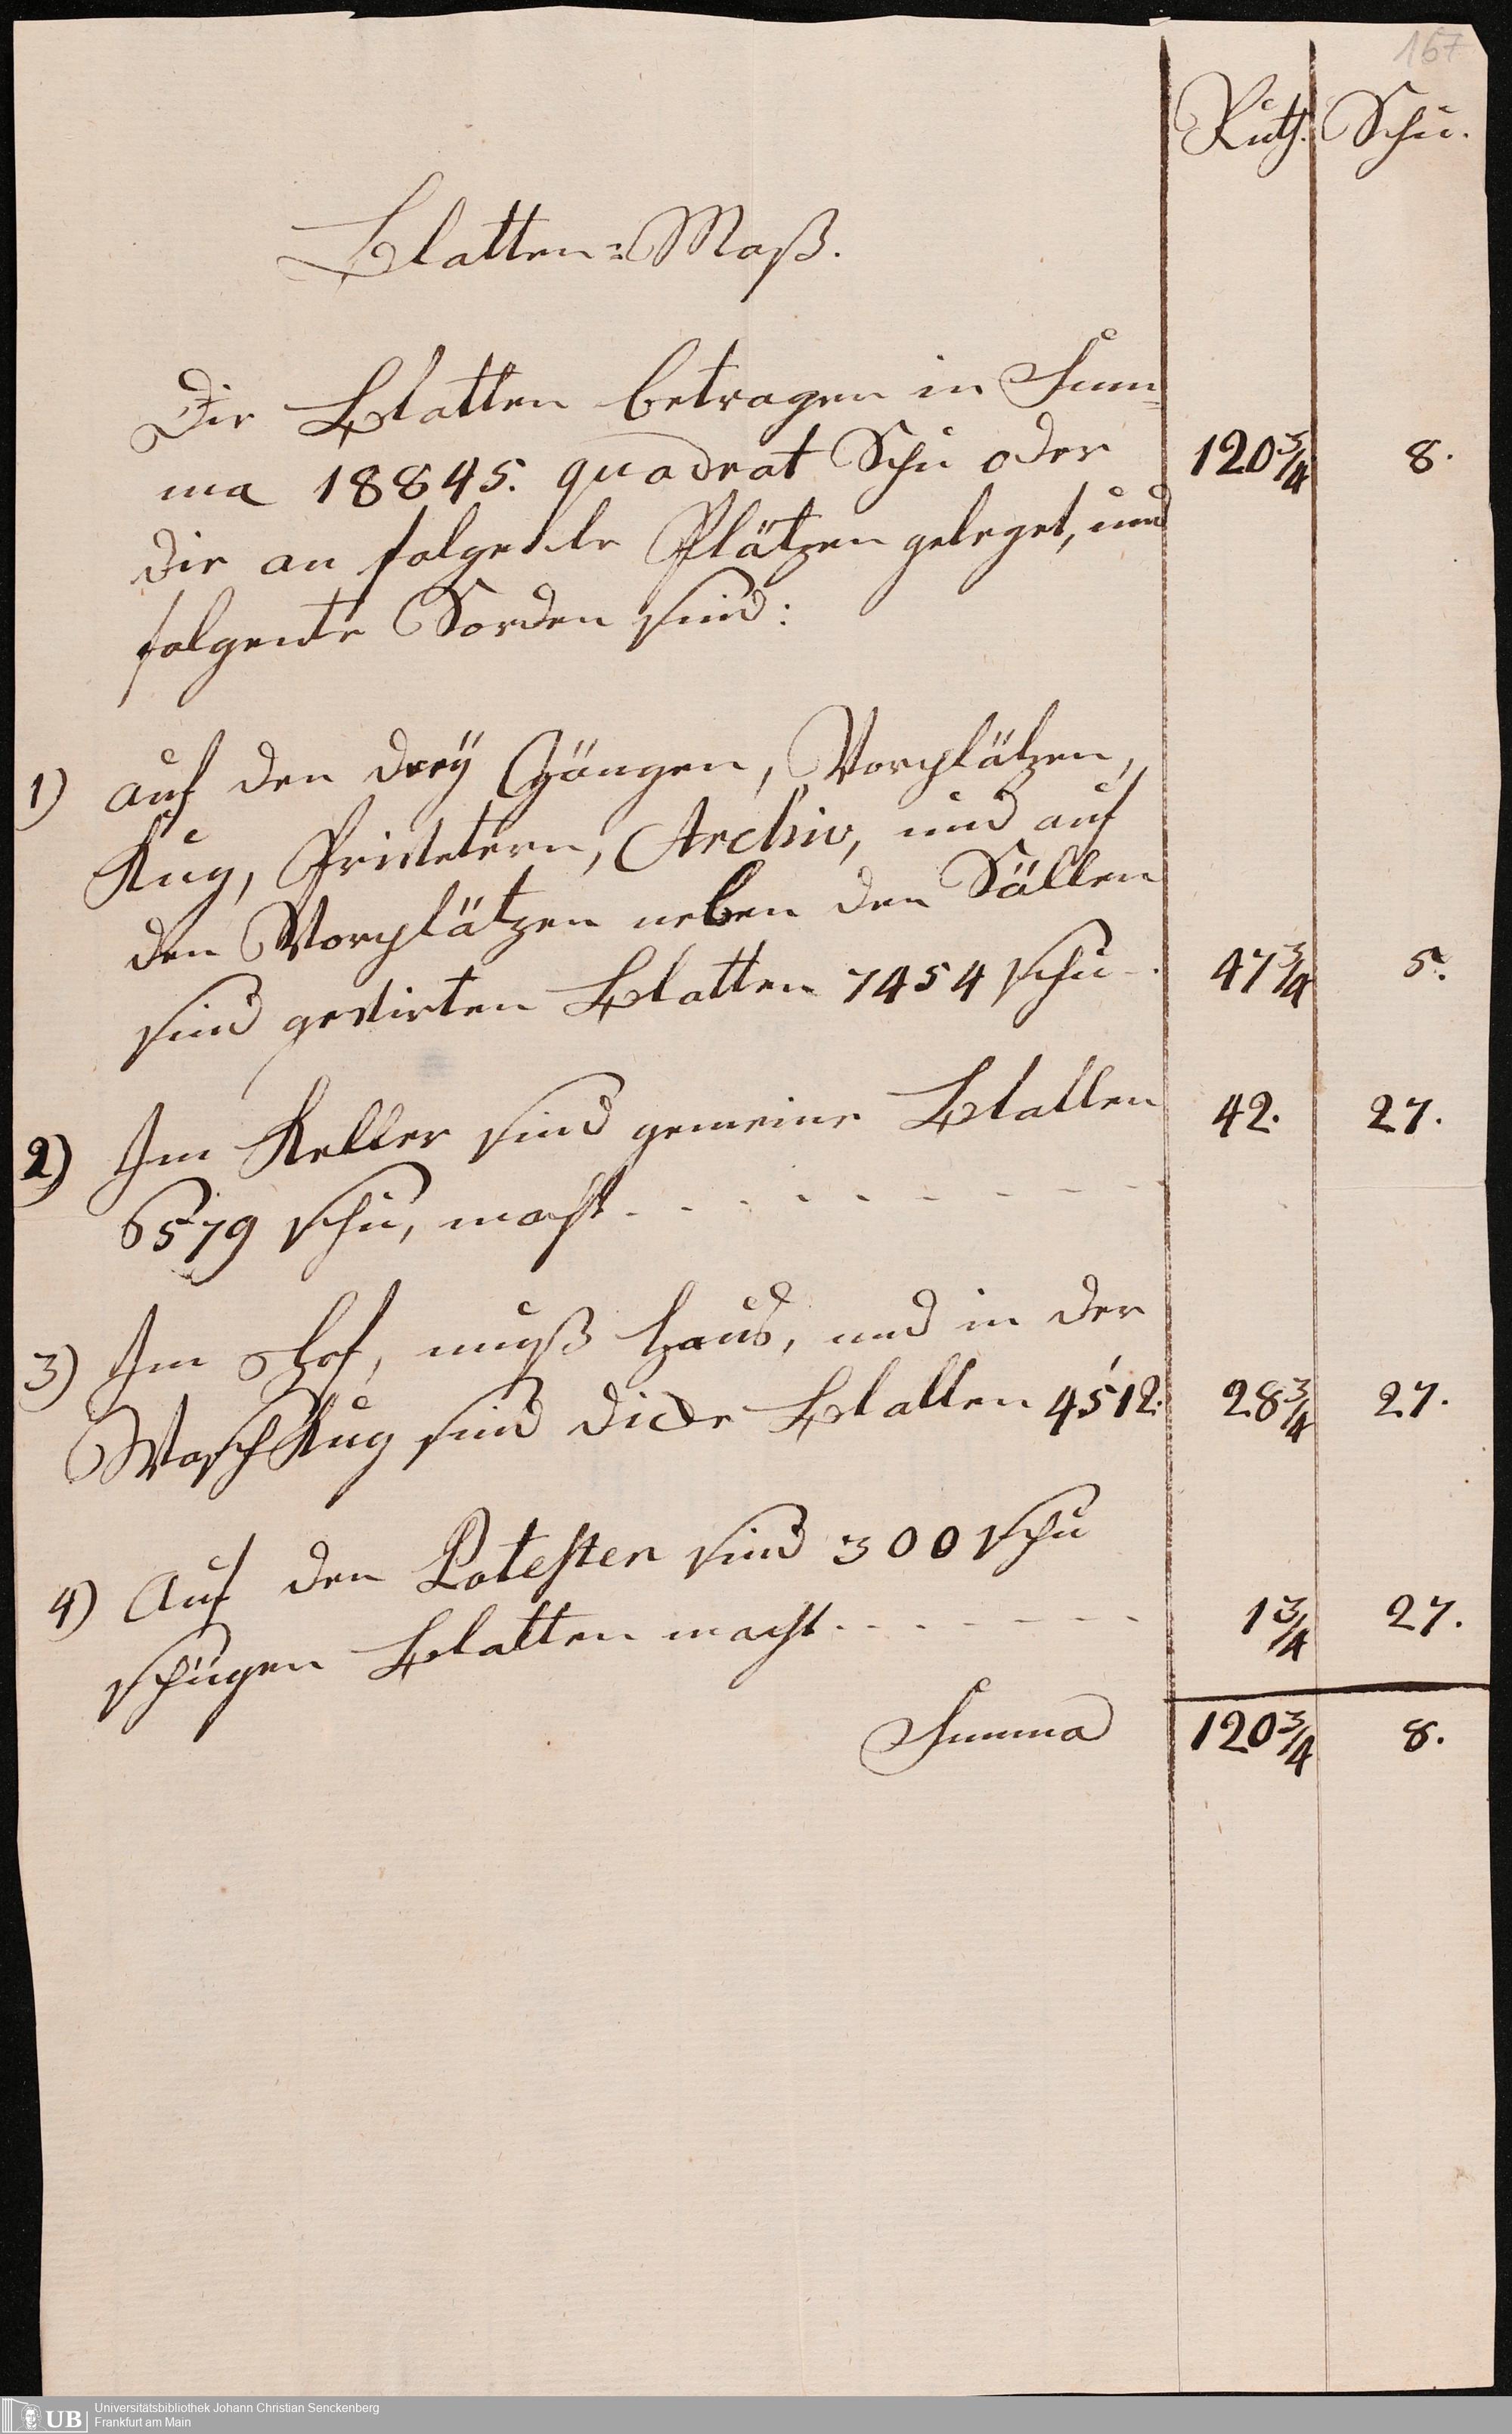 167
Ruth. Schu.
Blatten=Maß.
Die Blatten betragen in Sum=
ma 18845. quadrat Schu oder 120 3/4 8.
die an folgende Plätzen geleget, und
folgente Sorden sind:
1) auf den dreÿ Gängen, Vorplätzen,
Kug, Archiv, und auf
den Vorplätzen neben den Sällen
sind Blatten 7454 schu - . 47 3/4 5.
2) Im Keller sind gemeine Blatten 42. 27.
6579 schu, macht - - - - - - - -
3) Im Hof, haus, und in der
Wasch Kug sind dicke Blatten 4512. 28 3/4 27.
4) Auf den Potesten sind 300 schu
Blatten macht - - - - - - 1 3/4 27.
Summa 120 3/4 8.
UB Universitätsbibliothek Johann Christian Senckenberg
Frankfurt am Main